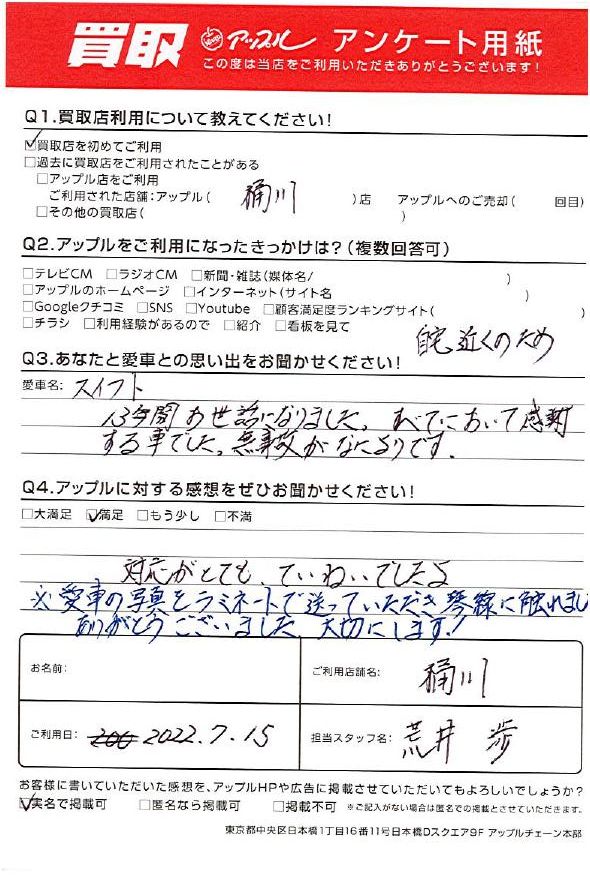 買取 アップル アンケート用紙
この度は当店をご利用いただきありがとうございます!
Q1.買取店利用について教えてください!
☑買取店を初めてご利用
□過去に買取店をご利用されたことがある
□アップル店をご利用
ご利用された店舗:アップル( 桶川 )店 アップルへのご売却( 回目)
□その他の買取店( )
Q2.アップルをご利用になったきっかけは?(複数回答可)
□テレビCM □ラジオCM □新聞・雑誌(媒体名/ )
□アップルのホームページ □インターネット(サイト名 )
□Googleクチコミ □SNS □Youtube □顧客満足度ランキングサイト( )
□チラシ □利用経験があるので □紹介 □看板を見て
自宅近くのため
Q3.あなたと愛車との思い出をお聞かせください!
愛車名: スイフト
13年間お世話になりました。すべてにおいて感謝
する車でした。無事故がなによりです。
Q4.アップルに対する感想をぜひお聞かせください!
□大満足 ☑満足 □もう少し □不満
対応がとても、ていねいでしたよ
※愛車の写真をラミネートで送っていただき琴線に触れまし
ありがとうございました 大切にします!
お名前: ご利用店舗名: 桶川
ご利用日: 2022.7.15 担当スタッフ名: 荒井 歩
お客様に書いていただいた感想を、アップルHPや広告に掲載させていただいてもよろしいでしょうか?
☑実名で掲載可 □匿名なら掲載可 □掲載不可 ※ご記入がない場合は匿名での掲載とさせていただきます。
東京都中央区日本橋1丁目16番11号日本橋Dスクエア9F アップルチェーン本部